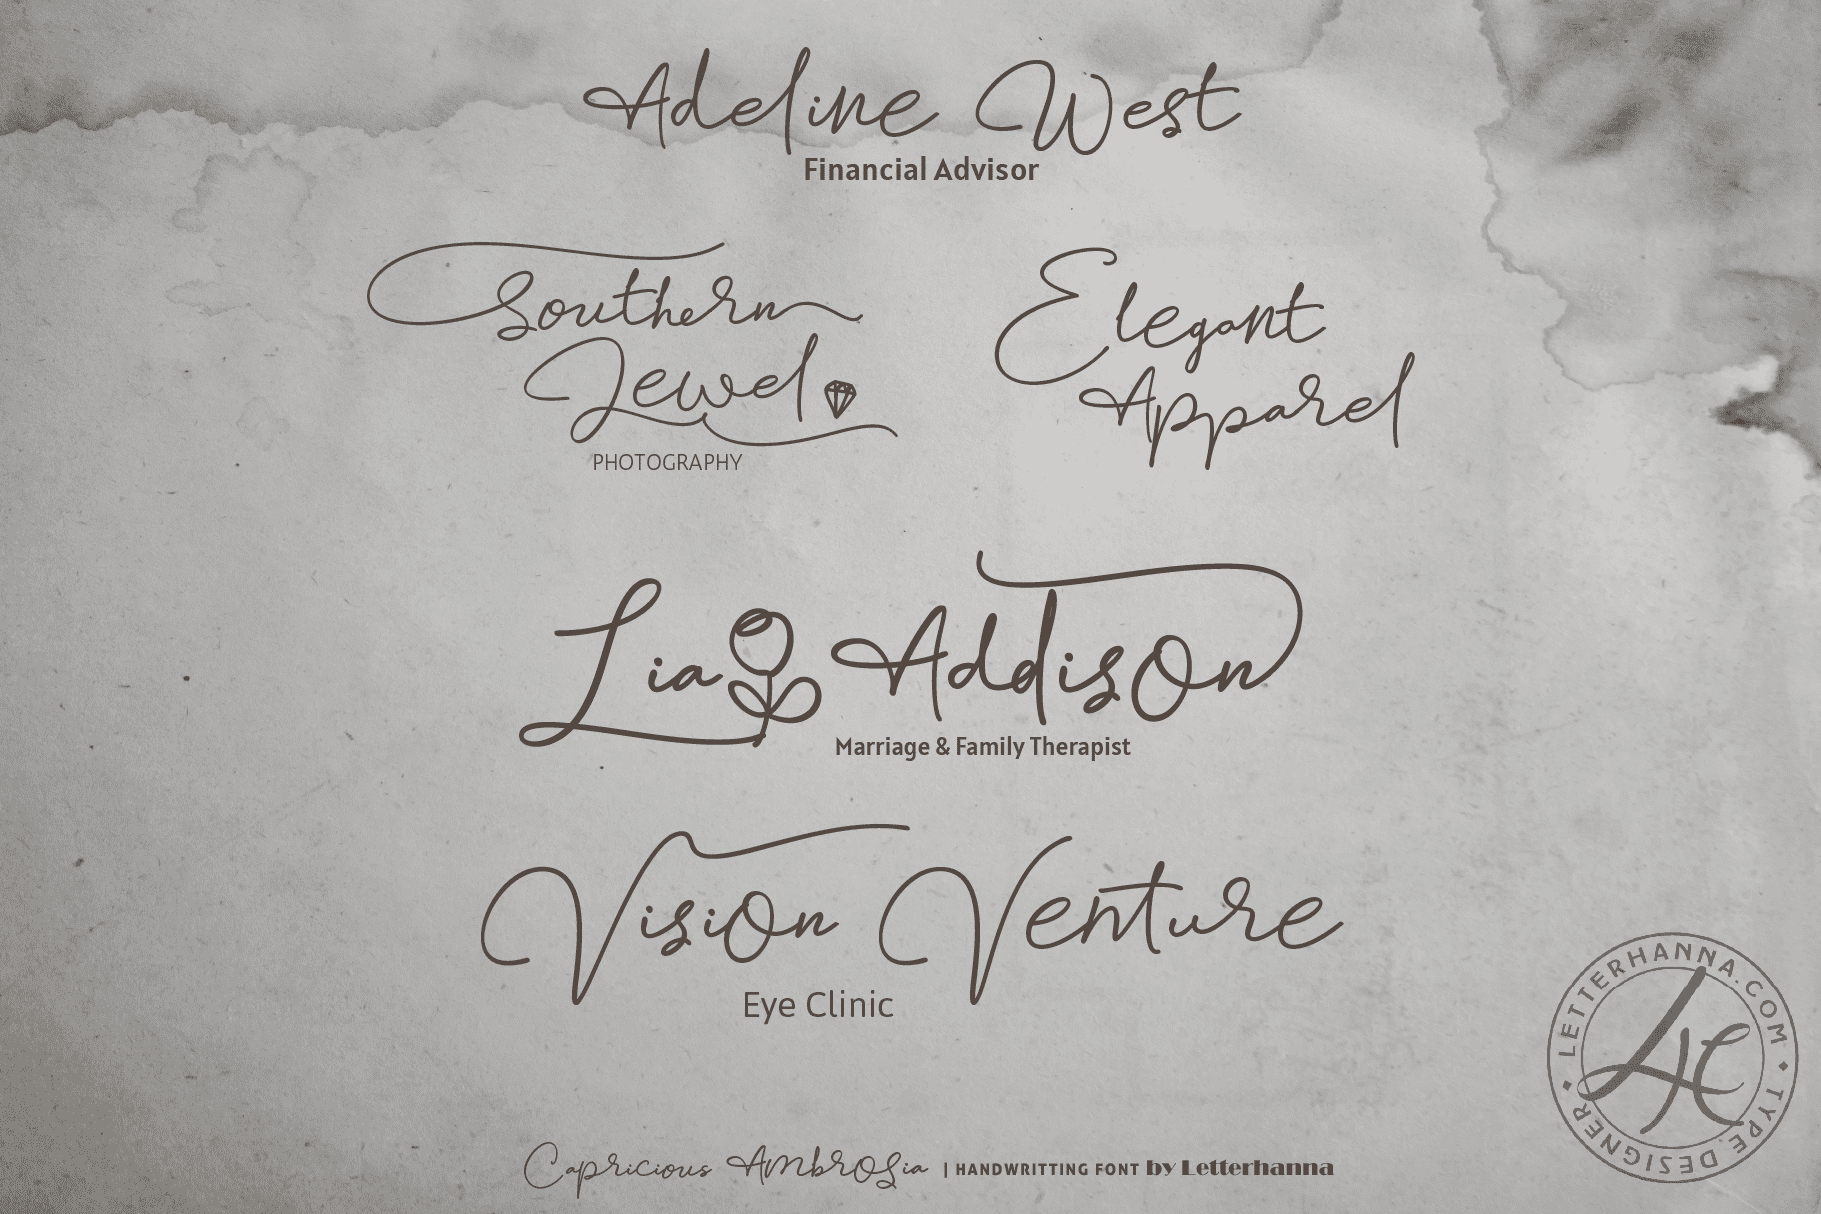 Adeline West
Financial Advisor
Southern
Jewel
PHOTOGRAPHY
Elegant
Apparel
Lia Addison
Marriage & Family Therapist
Vision Venture
Eye Clinic
LETTERHANNA.COM ◆ TYPE DESIGNER ◆
Capricious Ambrosia | HANDWRITTING FONT by Letterhanna